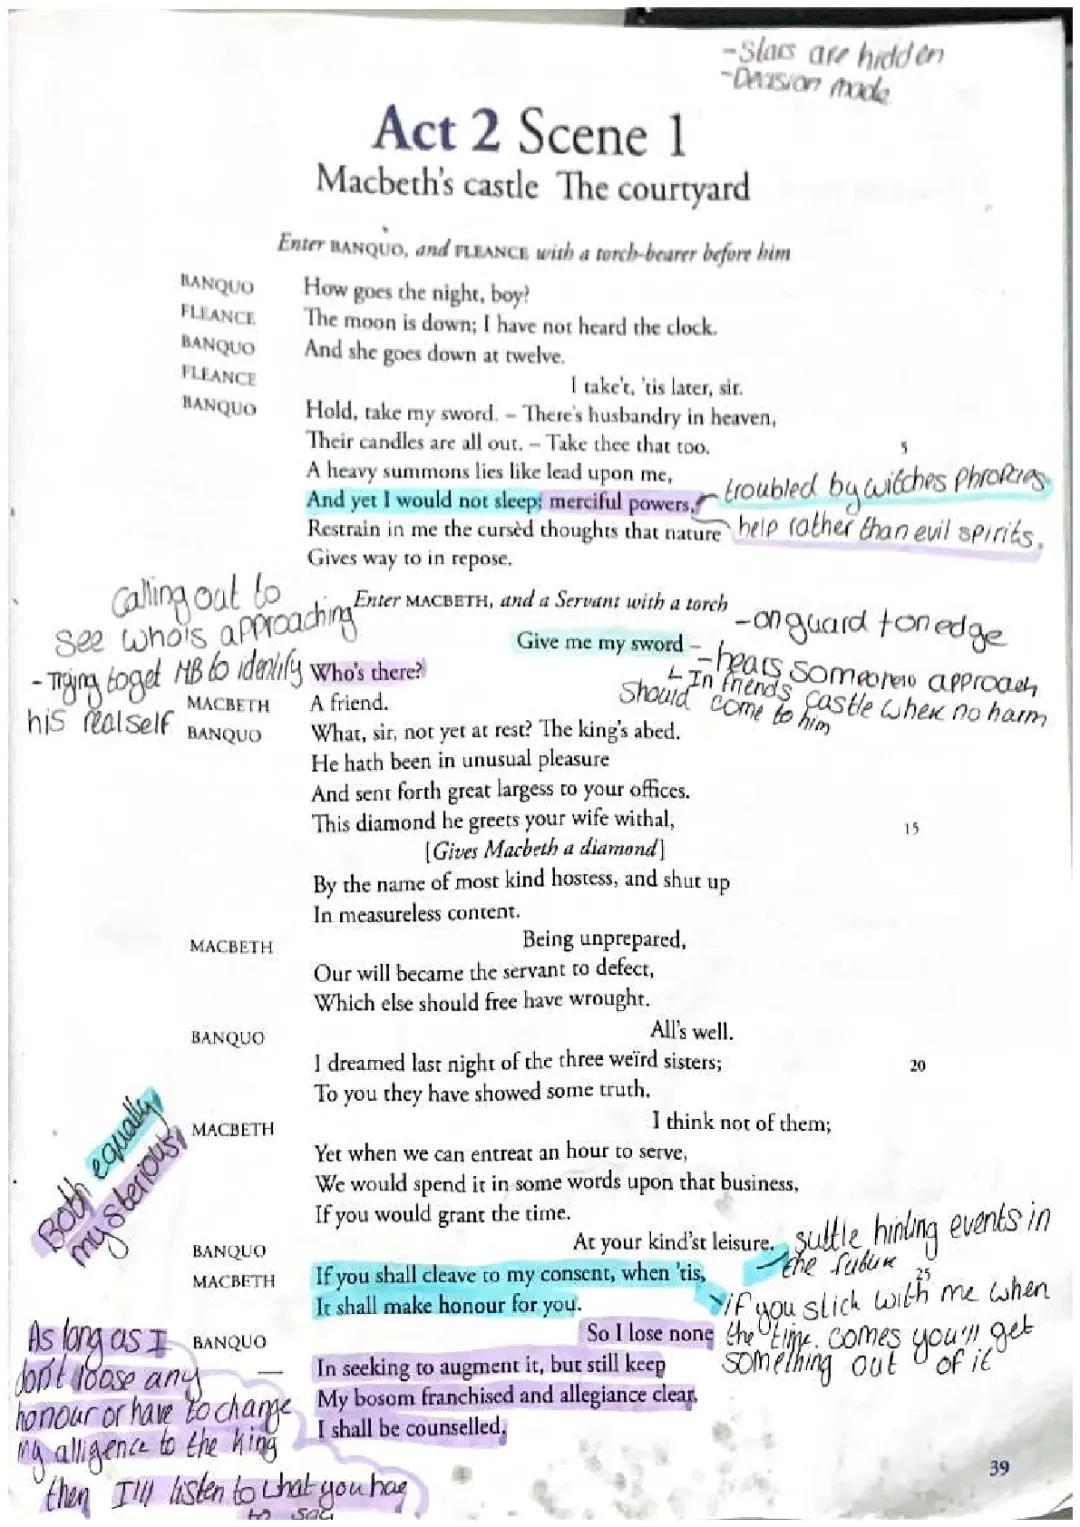 -Stars are hidden
-Decision made
Act 2 Scene 1
Macbeth's castle The courtyard
Enter BANQUO, and FLEANCE with a torch-bearer before him
BANQUO How goes the night, boy?
FLEANCE The moon is down; I have not heard the clock.
BANQUO And she goes down at twelve.
FLEANCE I take't, 'tis later, sir.
BANQUO Hold, take my sword. – There's husbandry in heaven,
Their candles are all out. – Take thee that too. 5
A heavy summons lies like lead upon me,
And yet I would not sleep; merciful powers,
troubled by witches Phropries
Restrain in me the cursèd thoughts that nature
help rather than evil spirits.
Gives way to in repose.
Enter MACBETH, and a Servant with a torch
calling out to
see who's approaching
- Trying to get MB to identify
his realself
Give me my sword –
-on guard + on edge
Who's there?
-hears someone approach
↳ In friends castle when no harm
should come to him
MACBETH A friend.
BANQUO What, sir, not yet at rest? The king's abed.
He hath been in unusual pleasure
And sent forth great largess to your offices.
This diamond he greets your wife withal, 15
[Gives Macbeth a diamond]
By the name of most kind hostess, and shut up
In measureless content.
MACBETH Being unprepared,
Our will became the servant to defect,
Which else should free have wrought.
BANQUO All's well.
I dreamed last night of the three weïrd sisters; 20
To you they have showed some truth.
MACBETH I think not of them;
Yet when we can entreat an hour to serve,
We would spend it in some words upon that business,
If you would grant the time.
Both equally
mysterious
BANQUO At your kind'st leisure.
suttle hinting events in
the future
MACBETH If you shall cleave to my consent, when 'tis, 25
It shall make honour for you.
-if you stick with me when
the time comes you'll get
something out of it
BANQUO So I lose none
In seeking to augment it, but still keep
My bosom franchised and allegiance clear,
I shall be counselled.
As long as I
don't loose any
honour or have to change
my alligence to the king
then I'll listen to what you hae
to say
39